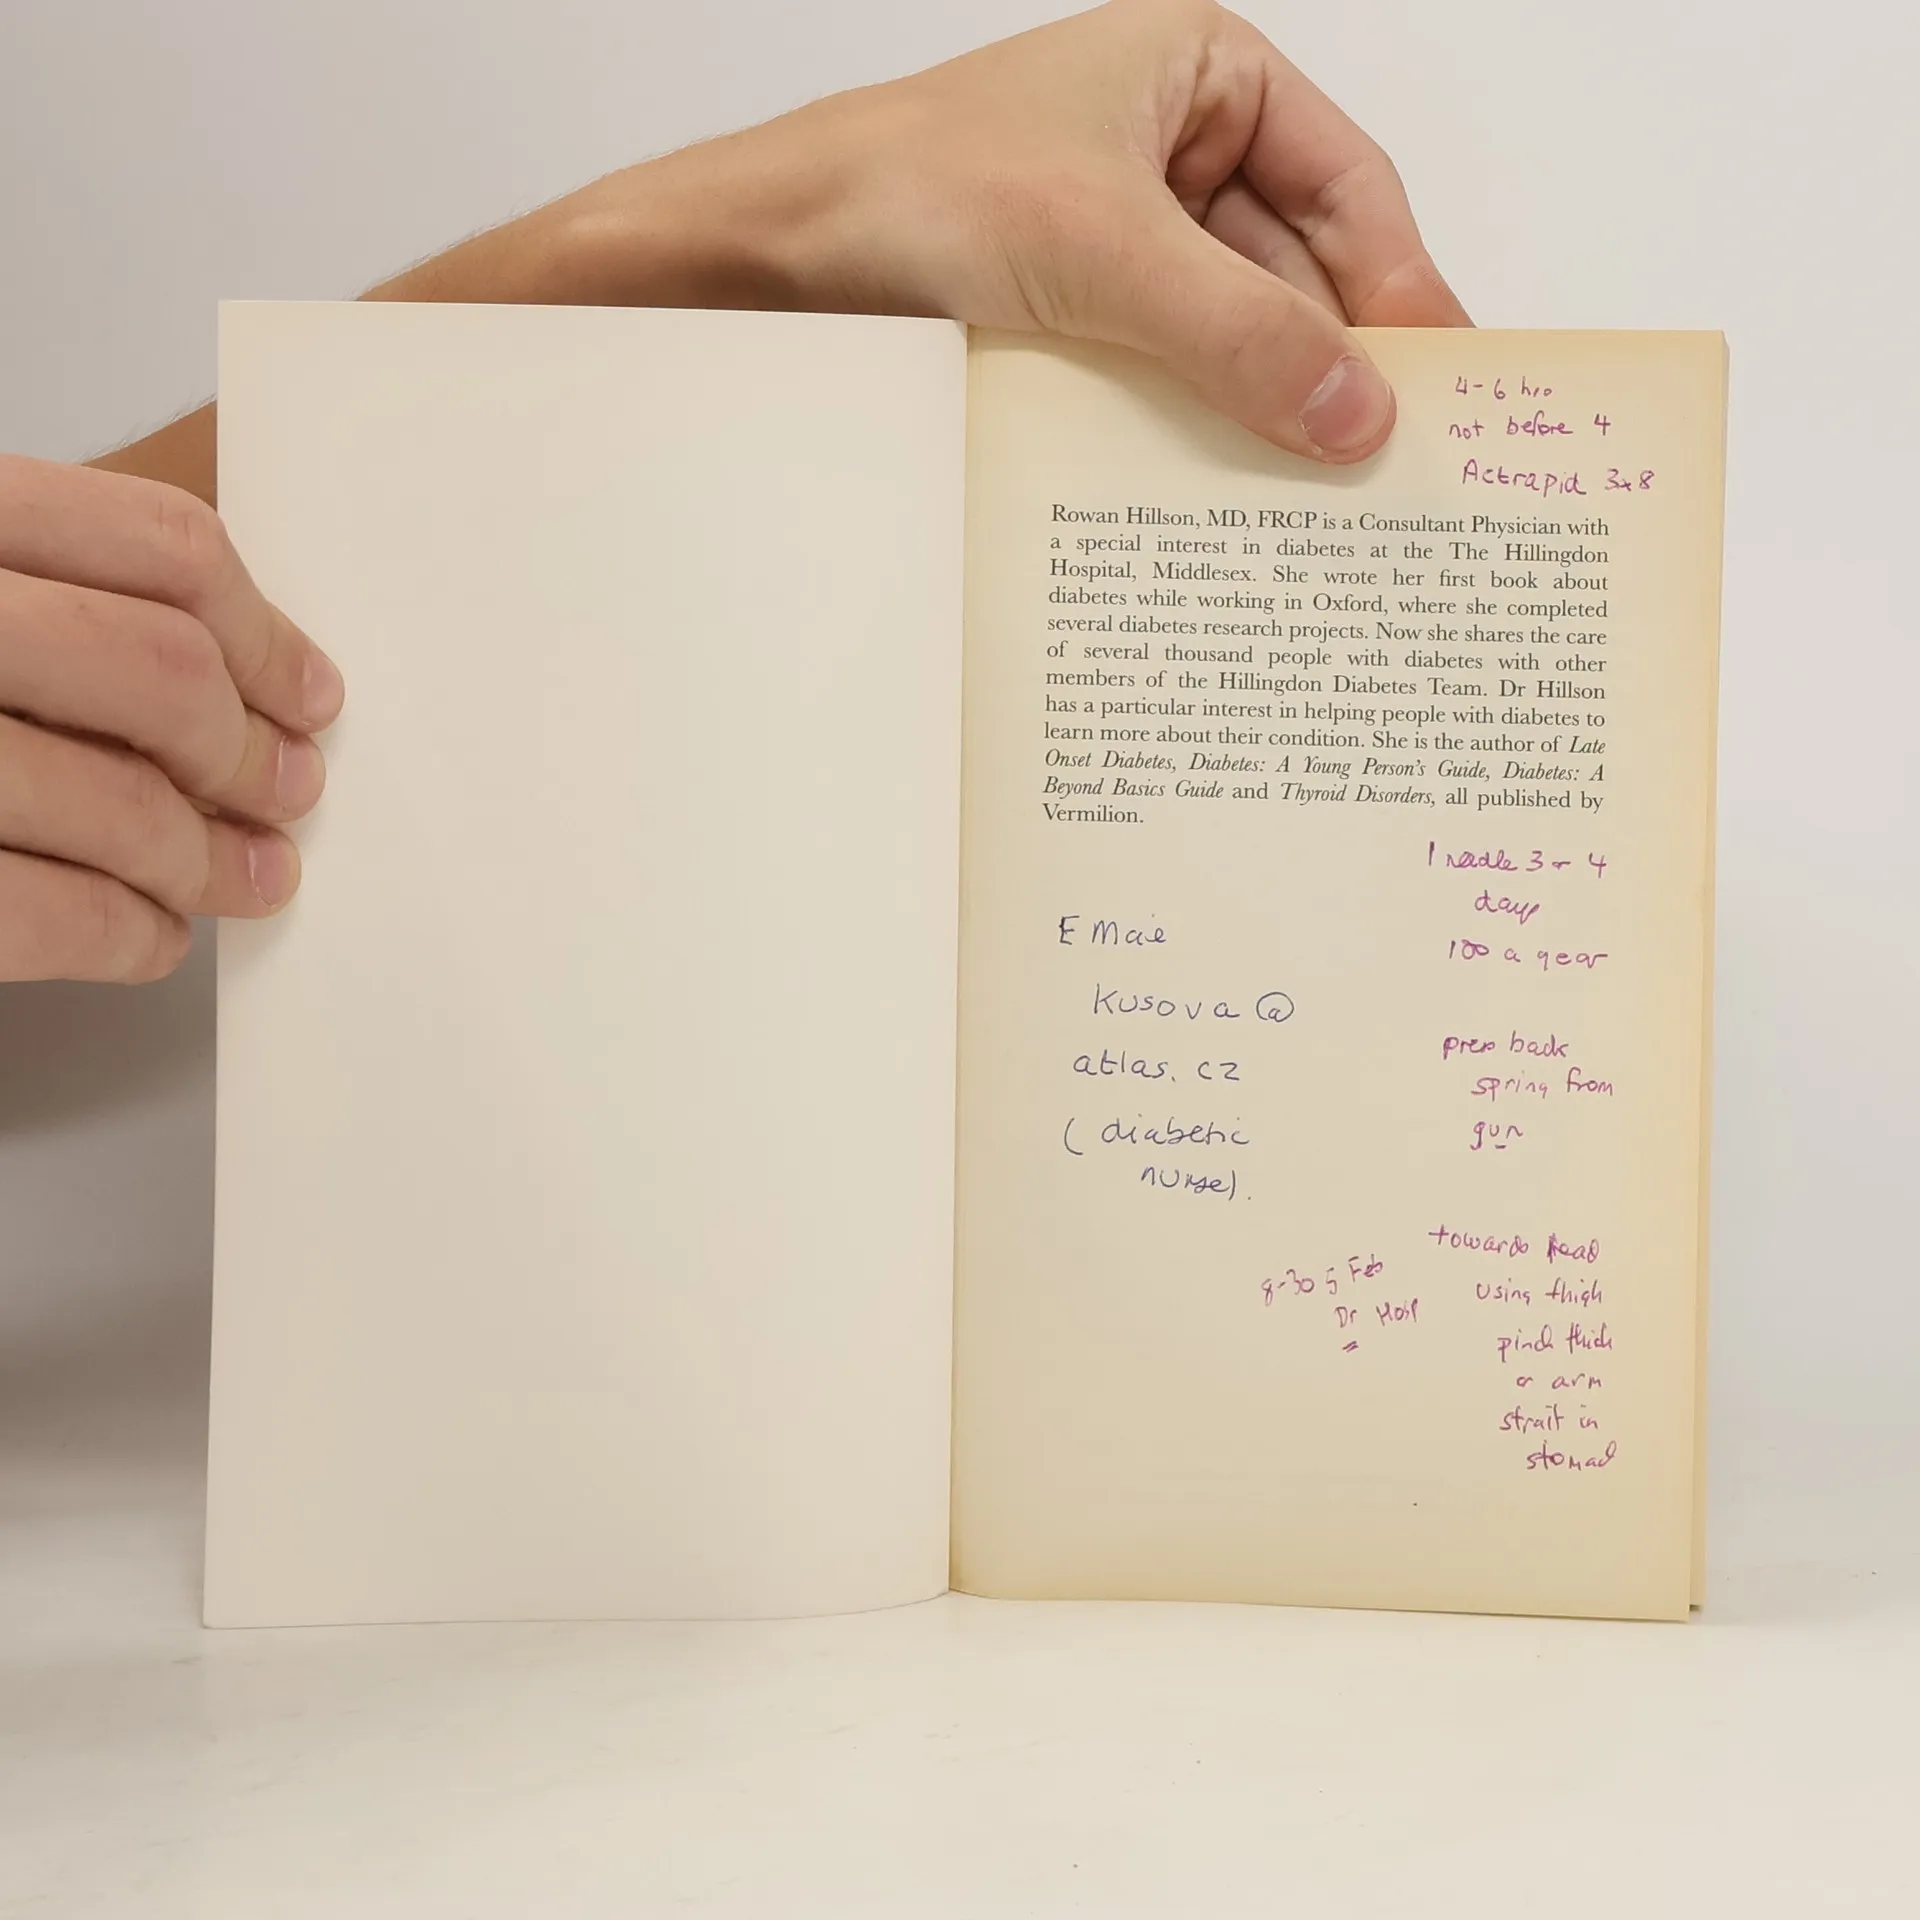 4-6 hrs
not before 4
Actrapid 3x8
Rowan Hillson, MD, FRCP is a Consultant Physician with
a special interest in diabetes at the The Hillingdon
Hospital, Middlesex. She wrote her first book about
diabetes while working in Oxford, where she completed
several diabetes research projects. Now she shares the care
of several thousand people with diabetes with other
members of the Hillingdon Diabetes Team. Dr Hillson
has a particular interest in helping people with diabetes to
learn more about their condition. She is the author of Late
Onset Diabetes, Diabetes: A Young Person's Guide, Diabetes: A
Beyond Basics Guide and Thyroid Disorders, all published by
Vermilion.
1 needle 3 or 4
days
100 a year
E Mail
Kusova @
atlas.cz
(diabetic
nurse).
press back
spring from
gun
towards head
using thigh
pinch thick
or arm
strait in
8-30 5 Feb
Dr